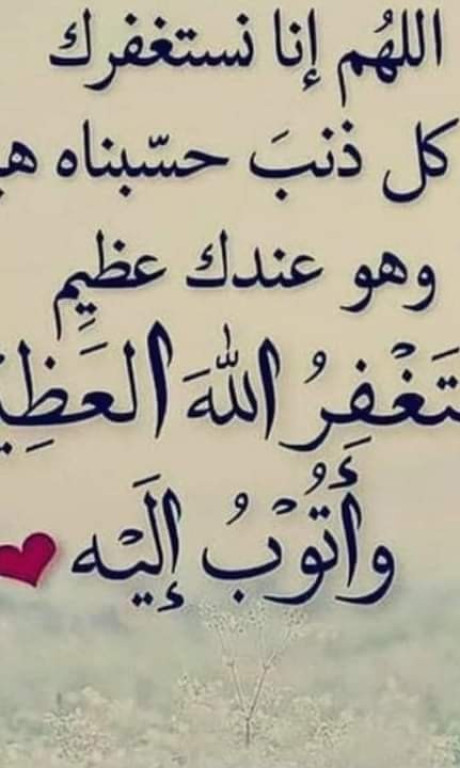 اللهُم إنا نستغفرك
كل ذنبَ حسّبناه
وهو عندك عظيمِ
اللهَ
وأَتُوْبُ إلَيْه